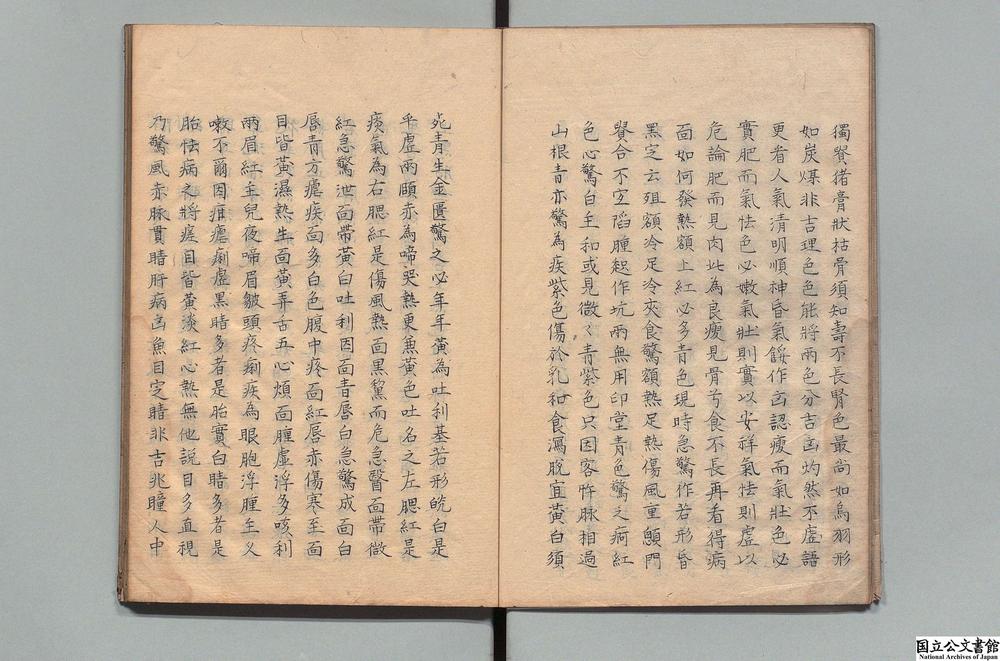 獨賢猪膏狀枯骨須知壽不長腎色最尚如烏羽形
如炭煤非吉理色色能將兩色分吉凶灼然不虛語
更看人氣清明順神昏氣餒作凶認瘦而氣壯色必
實肥而氣怯色必嫩氣壯則實以安祥氣怯則虛以
危論肥而見肉此為良瘦見骨兮食不長再看得病
面如何發熱額上紅必多青色現時急驚作若形昏
黑定云殂額冷足冷夾食驚額熱足熱傷風更顖門
腎合不宜陷腫起作坑兩無用印堂青色驚之病紅
色心驚白主和或見微〻青紫色只因客忤脉相過
山根青亦驚為疾紫色傷於乳和食瀉脫宜黃白須
兆青生金匱驚之必年年黃為吐利基若形皖白是
乎虛兩頤赤為啼哭熱更兼黃色吐名之左腮紅是
痰氣為右腮紅是傷風熱面黑黧而危急醫面帶微
紅急驚泄面帶黃白吐利因面青唇白急驚成面白
唇青方瘧疾面多白色腹中疼面紅唇赤傷寒至面
目皆黃濕熱生面黃弄舌五心煩面腫虛浮多咳利
兩眉紅主兒夜啼眉皺頭疼痢疾為眼胞浮腫主又
嗽不爾因疳瘧痢虛黑睛多者是胎實白睛多者是
胎怯病之將瘥目皆黃淡紅心熱無他說目多直視
乃驚風赤脉貫睛肝病凶魚目定睛非吉兆瞳人中
国立公文書館
National Archives of Japan